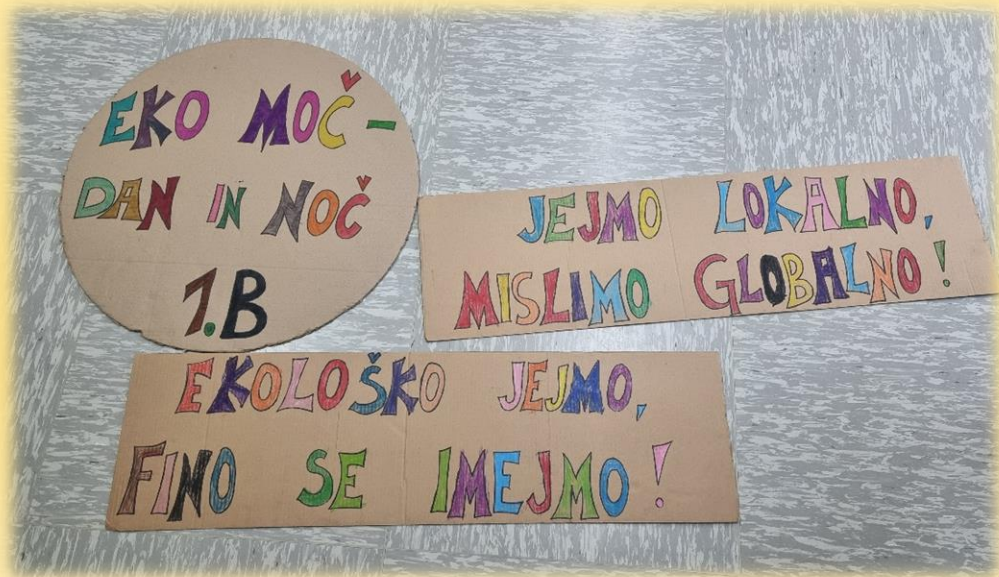 EKO MOČ -
DAN IN NOČ
1.B
JEJMO LOKALNO,
MISLIMO GLOBALNO!
EKOLOŠKO JEJMO,
FINO SE IMEJMO!